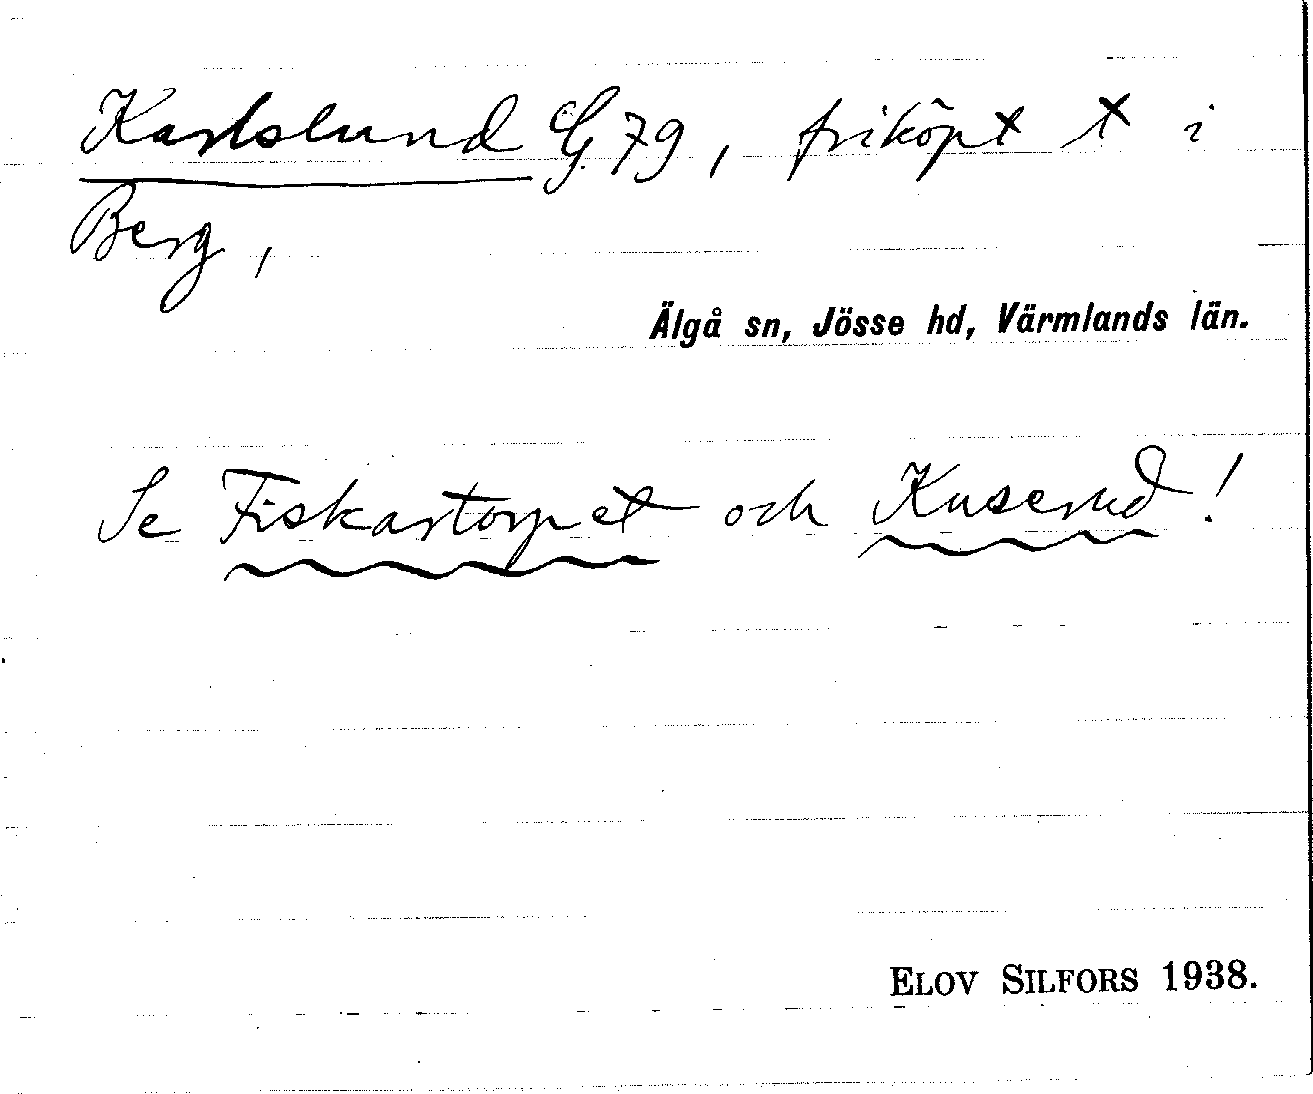 Karlslund G. 79, friköpt t i
Berg,
Älgå sn, Jösse hd, Värmlands län.
Se Fiskartorpet och Kuserud!
ELOV SILFORS 1938.